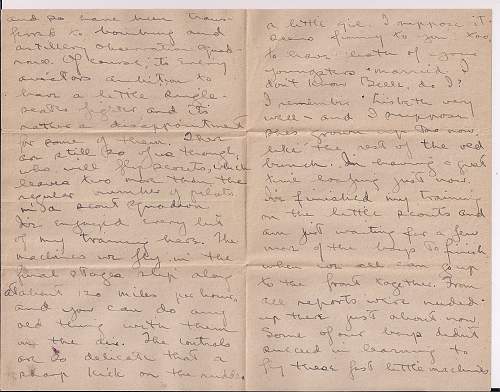 and so have been trans-
ferred to bombing and
artillery observation squad-
rons. Of course, its every
aviators ambition to
have a little single-
seater fighter and its
rather a disappointment
for some of them. There
are still 20 of us though
who will fly scouts, which
leaves two more than the
regular number of pilots
in a scout squadron
I've enjoyed every bit
of my training here. The
machines we fly in the
final stages slip along
at about 120 miles per hour,
and you can do any
old thing with them
in the air. The controls
are so delicate that a
sharp kick on the rudder
a little girl. I suppose it
seems funny to you too
to have both of your
youngsters married. I
don't know Belle, do I?
I remember Lisbeth very
well - and I suppose
she's grown up too now
like the rest of the old
bunch. I'm having a great
time loafing just now.
I've finished my training
on the little scouts and
am just waiting for a few
more of the boys to finish
when we all can go up
to the front together. From
all reports we're needed
up there just about now.
Some of our boys didnt
succeed in learning to
fly these fast little machines